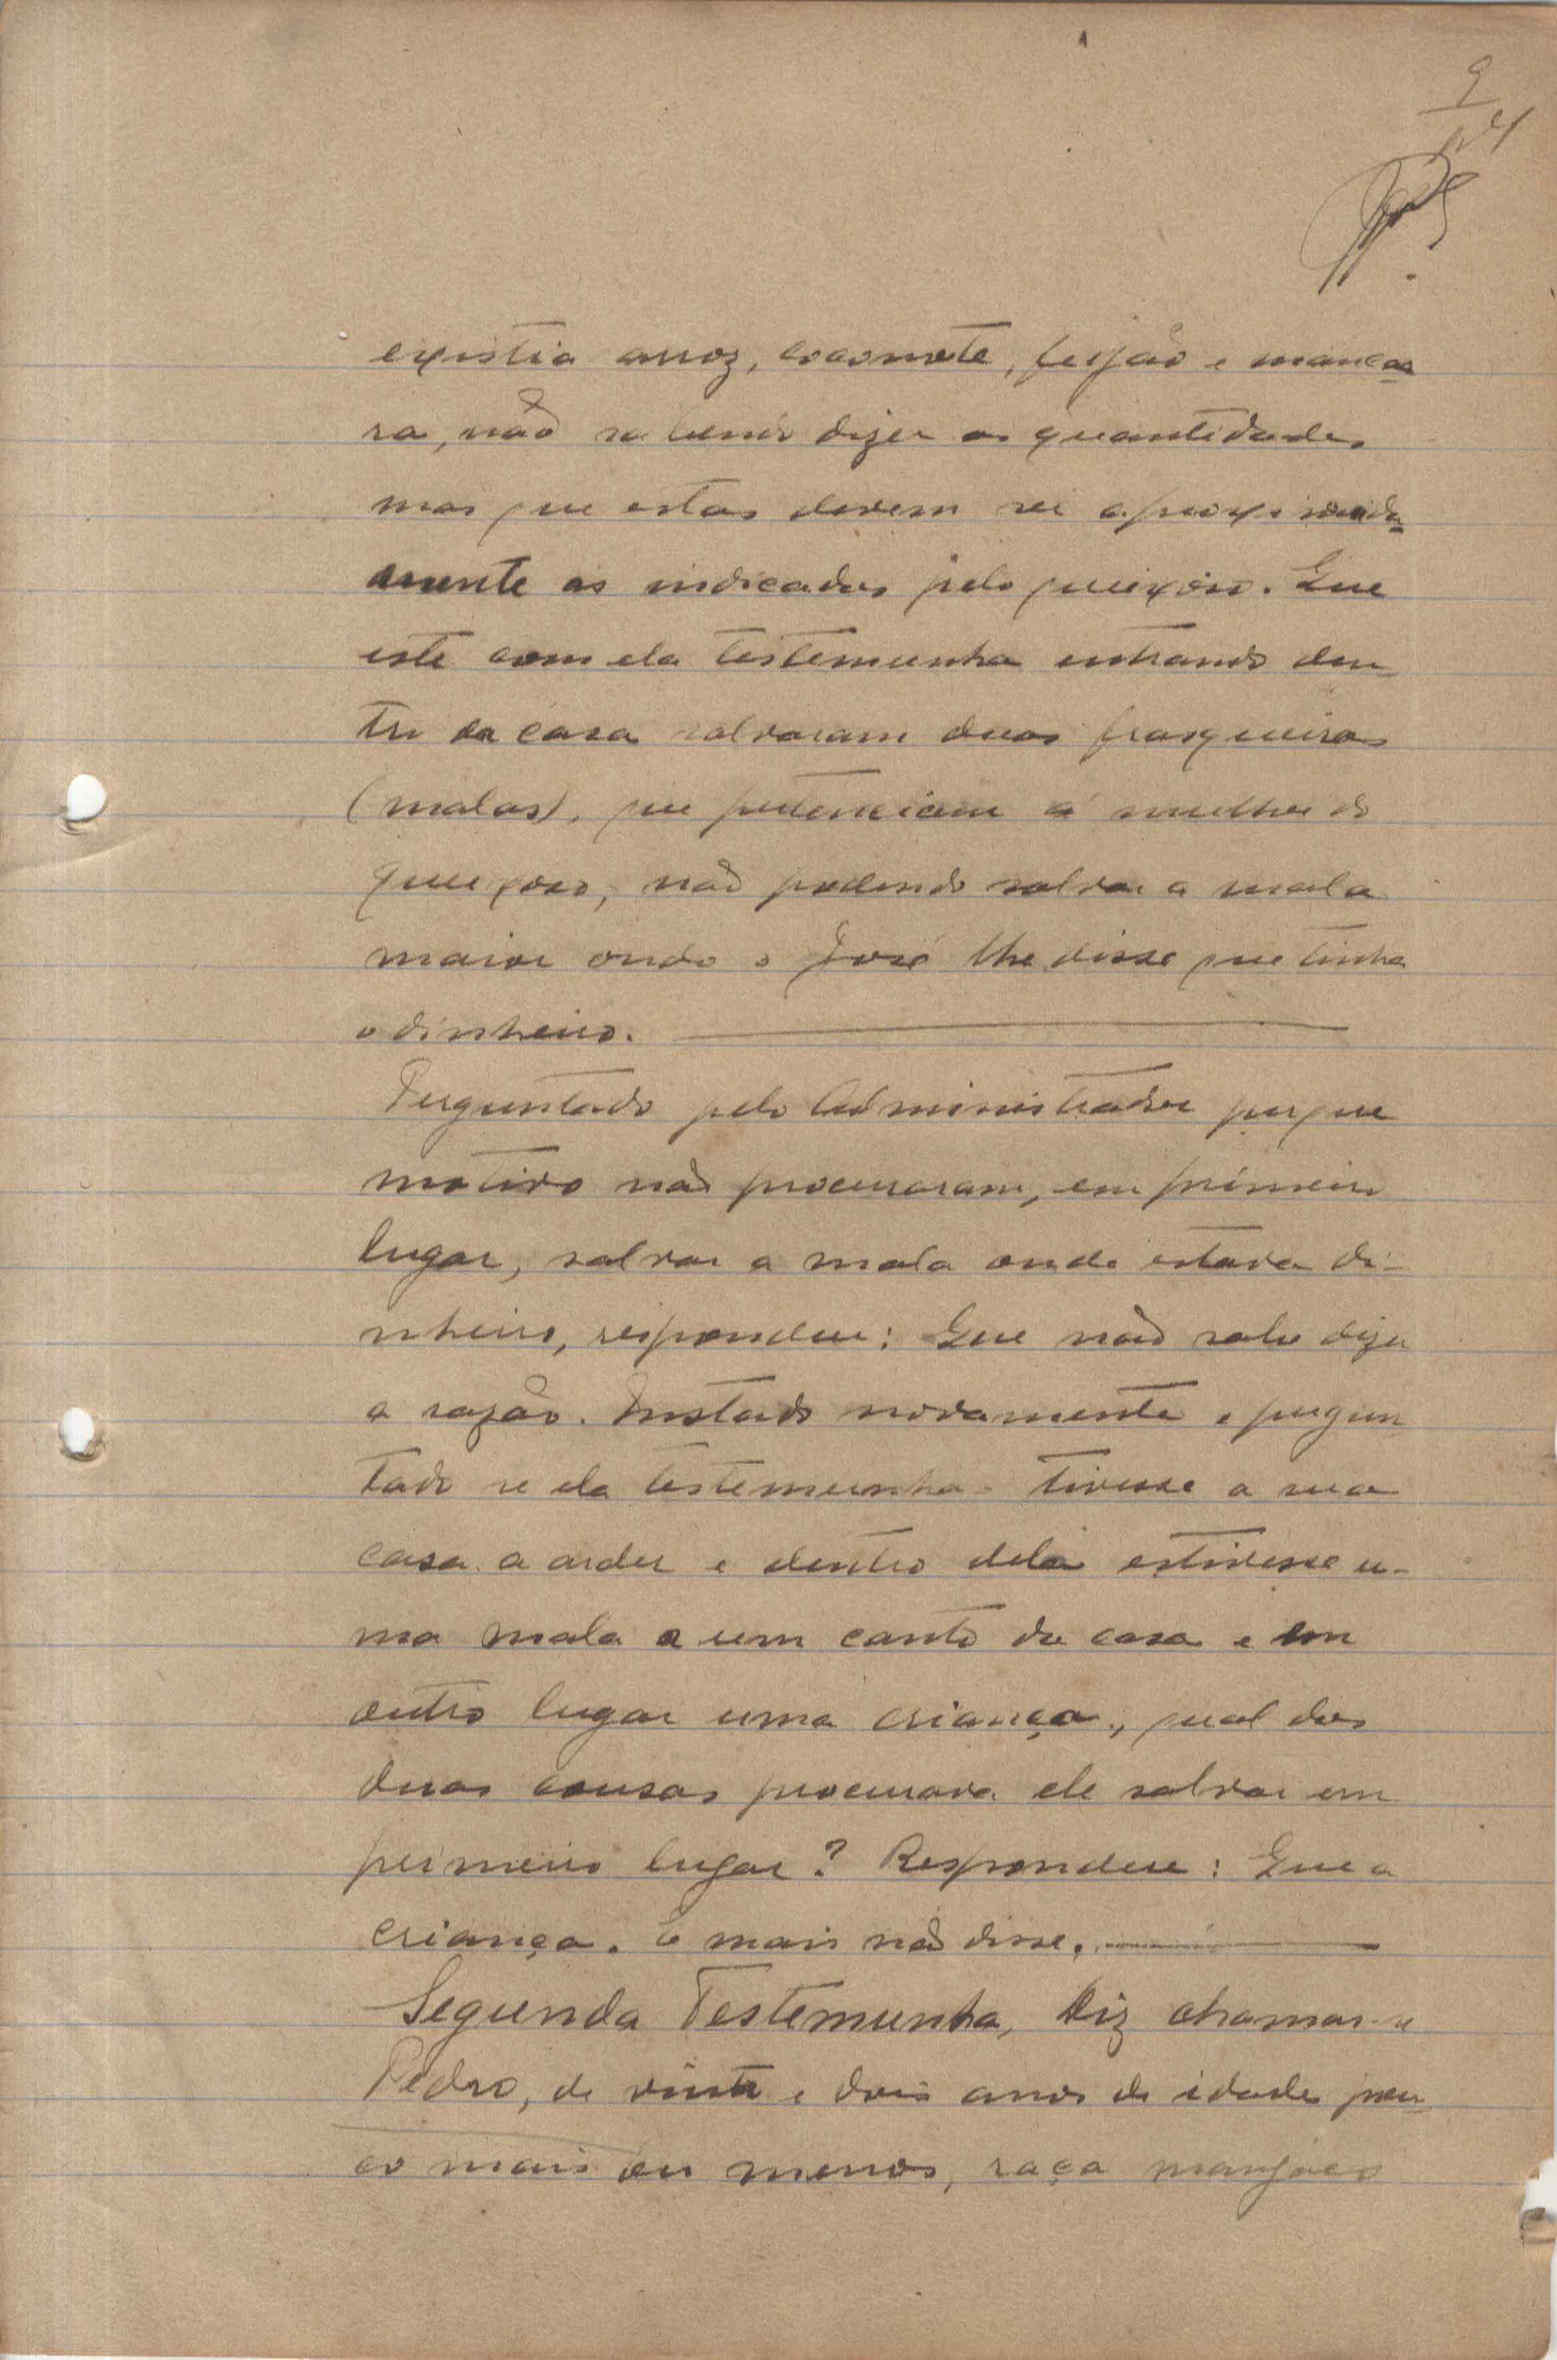 9
existia arroz, coconote, feijão e manca
ra, não sabendo dizer as quantidades
mas que estas devem ser aproximada
mente as indicadas pelo queixoso. Que
este com ela testemunha entrando den
tro da casa salvaram duas frasqueiras
(malas), que pertenciam á mulher do
queixoso, não podendo salvar a mala
maior onde o José lhe disse que tinha
o dinheiro.
Perguntado pelo Administrador porque
motivo não procuraram, em primeiro
lugar, salvar a mala onde estava di-
nheiro, respondeu: Que não sabe dizer
a razão. Instado novamente e pergun
tado se ela testemunha tivesse a sua
casa a arder e dentro dela estivesse u-
ma mala a um canto da casa e em
outro lugar uma criança, qual das
duas cousas procurava ele salvar em
primeiro lugar? Respondeu: Que a
criança. E mais não disse.
Segunda Testemunha, Diz chamar-se
Pedro, de vinte e dois anos de idade pou
co mais ou menos, raça manjaco